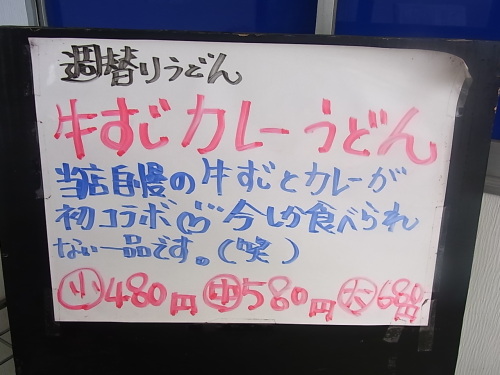 週替りうどん
牛すじカレーうどん
当店自慢の牛すじとカレーが
初コラボ 今しか食べられ
ない一品です。(笑)
小480円 中580円 大680円